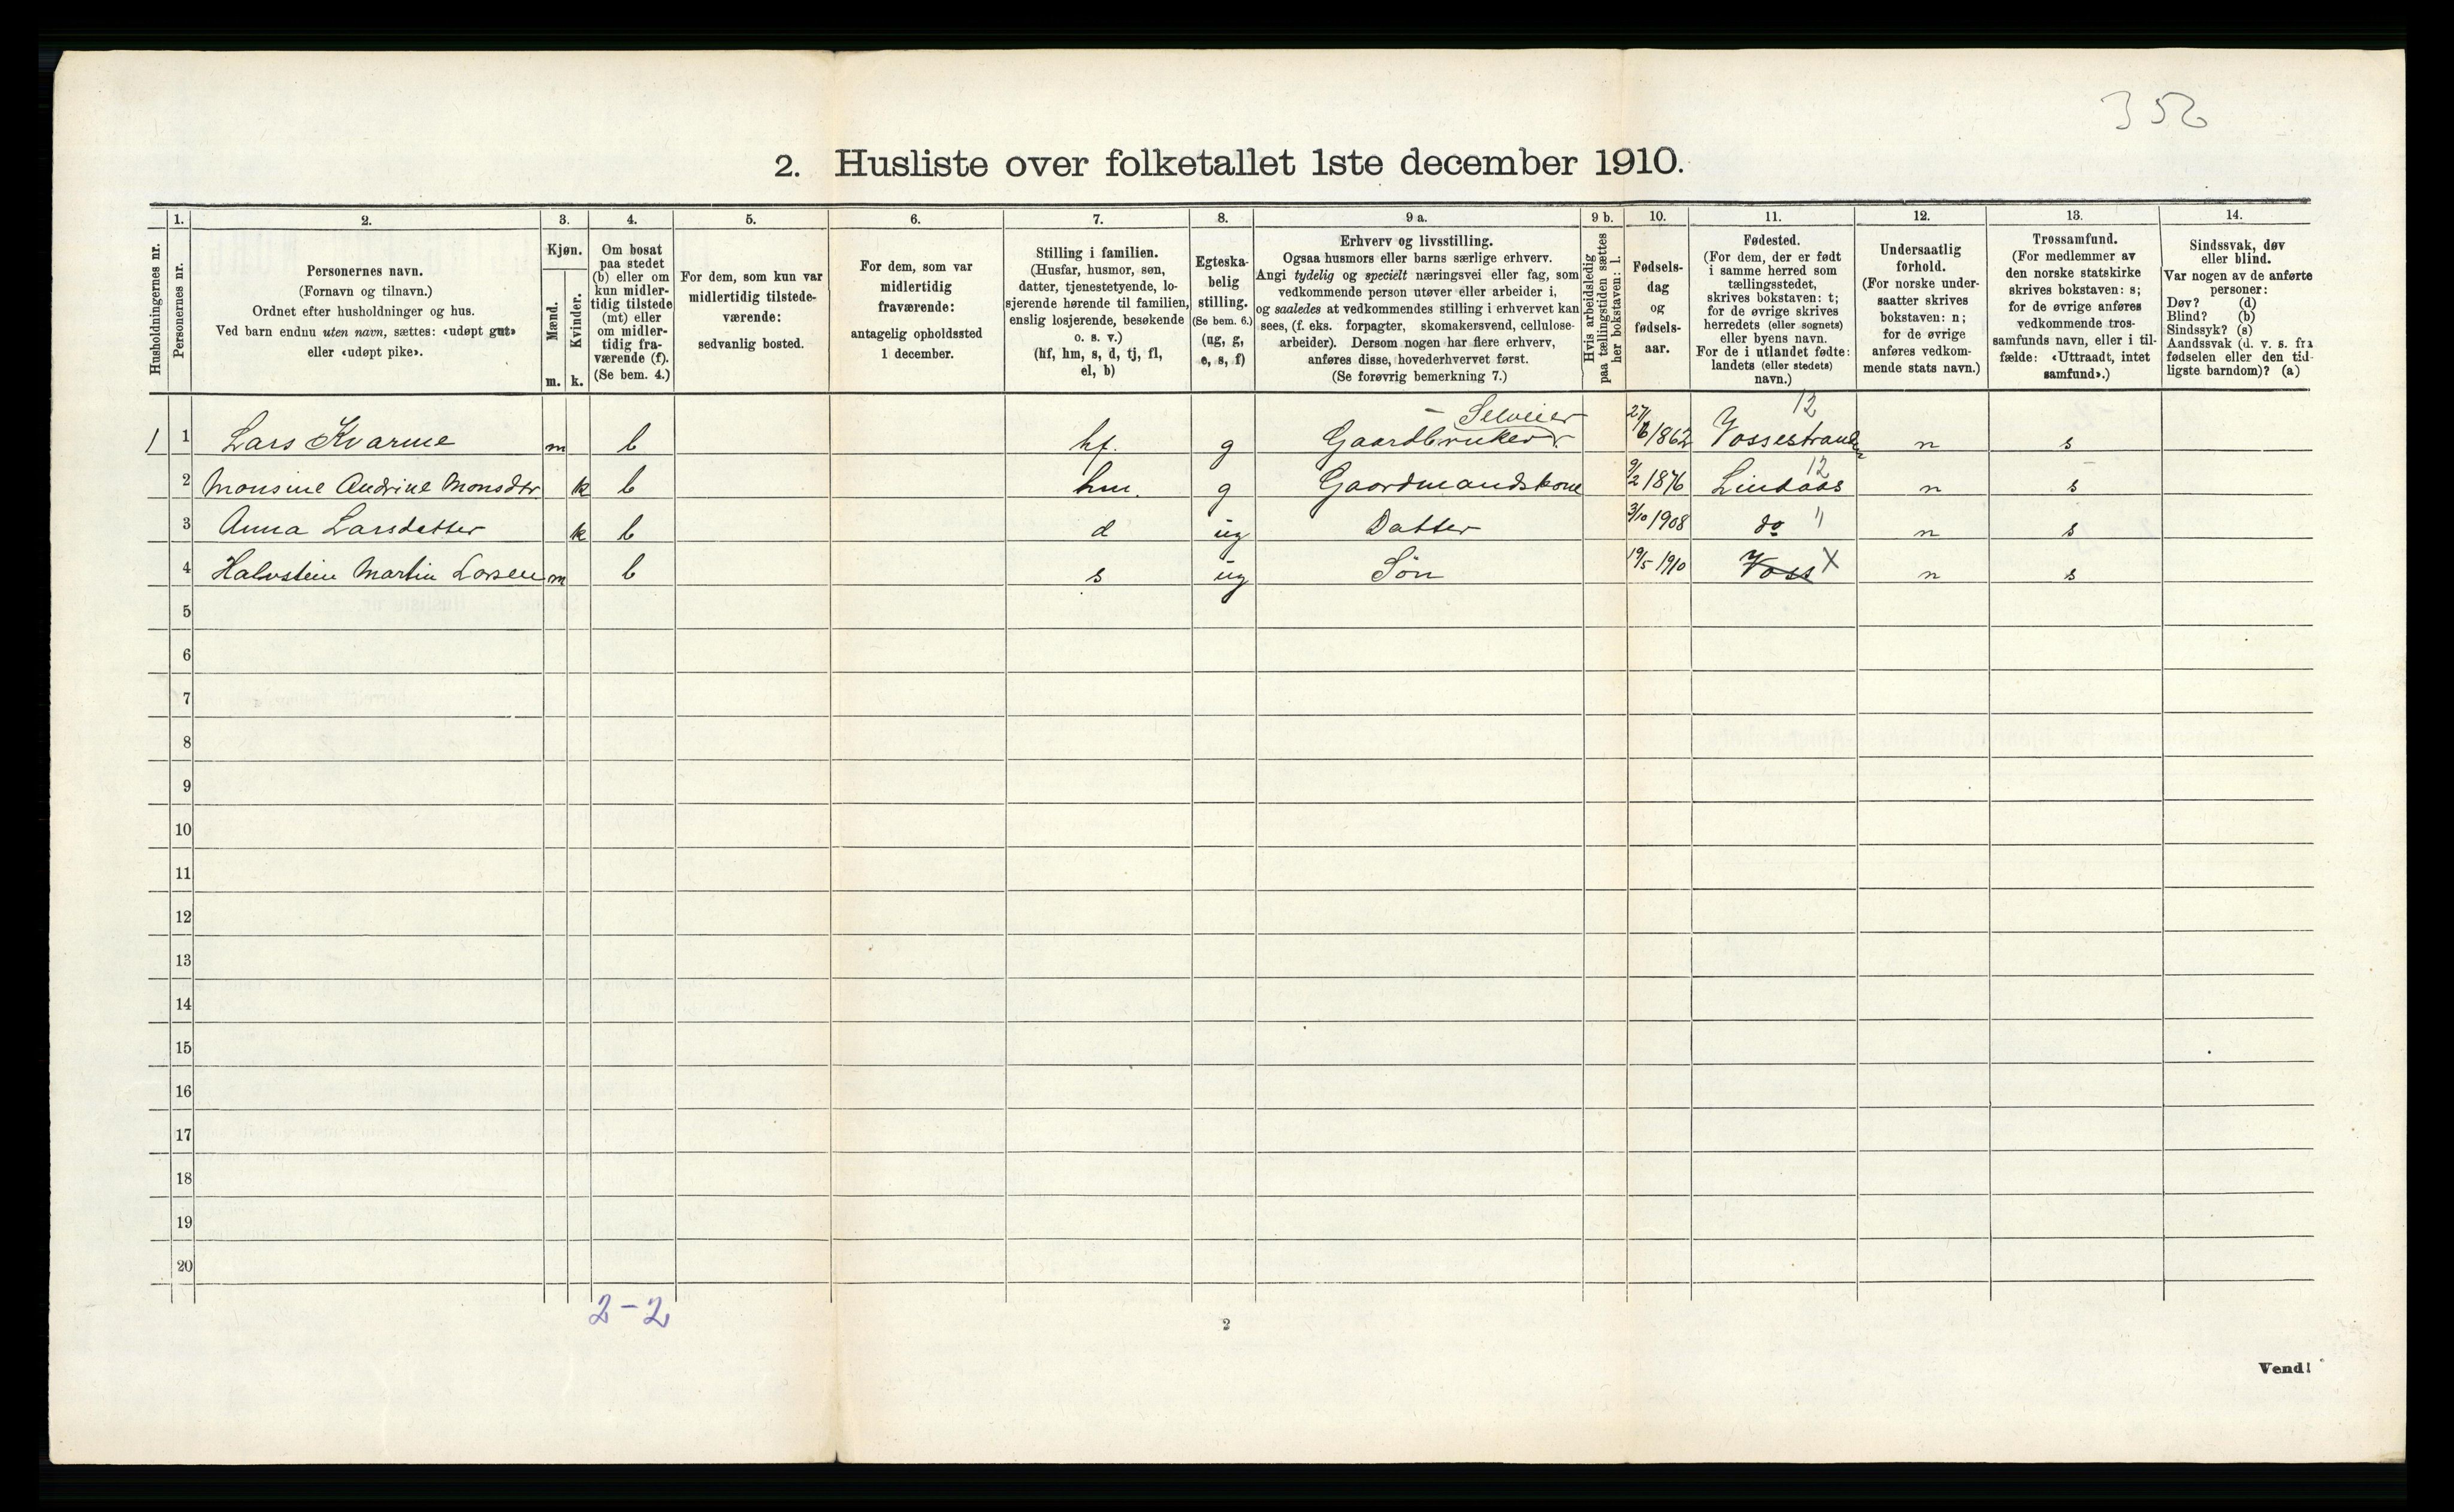 352
2. Husliste over folketallet 1ste december 1910.
Husholdningernes nr.
1.
Personernes nr.
2.
Personernes navn.
(Fornavn og tilnavn.)
Ordnet efter husholdninger og hus.
Ved barn endnu uten navn, sættes: «udøpt gut»
eller «udøpt pike».
3.
Kjøn.
Mænd.
Kvinder.
m. k.
4.
Om bosat
paa stedet
(b) eller om
kun midler-
tidig tilstede
(mt) eller
om midler-
tidig fra-
værende (f).
(Se bem. 4.)
5.
For dem, som kun var
midlertidig tilstede-
værende:
sedvanlig bosted.
6.
For dem, som var
midlertidig
fraværende:
antagelig opholdssted
1 december.
7.
Stilling i familien.
(Husfar, husmor, søn,
datter, tjenestetyende, lo-
sjerende hørende til familien,
enslig losjerende, besøkende
o. s. v.)
(hf, hm, s, d, tj, fl,
el, b)
8.
Egteska-
belig
stilling.
(Se bem. 6.)
(ug, g,
e, s, f)
9 a.
Erhverv og livsstilling.
Ogsaa husmors eller barns særlige erhverv.
Angi tydelig og specielt næringsvei eller fag, som
vedkommende person utøver eller arbeider i,
og saaledes at vedkommendes stilling i erhvervet kan
sees, (f. eks. forpagter, skomakersvend, cellulose-
arbeider). Dersom nogen har flere erhverv,
anføres disse, hovederhvervet først.
(Se forøvrig bemerkning 7.)
9 b.
Hvis arbeidsledig
paa tællingstiden sættes
her bokstaven: l.
10.
Fødsels-
dag
og
fødsels-
aar.
11.
Fødested.
(For dem, der er født
i samme herred som
tællingsstedet,
skrives bokstaven: t;
for de øvrige skrives
herredets (eller sognets)
eller byens navn.
For de i utlandet fødte:
landets (eller stedets)
navn.)
12.
Undersaatlig
forhold.
(For norske under-
saatter skrives
bokstaven: n;
for de øvrige
anføres vedkom-
mende stats navn.)
13.
Trossamfund.
(For medlemmer av
den norske statskirke
skrives bokstaven: s;
for de øvrige anføres
vedkommende tros-
samfunds navn, eller i til-
fælde: «Uttraadt, intet
samfund».)
14.
Sindssvak, døv
eller blind.
Var nogen av de anførte
personer:
Døv? (d)
Blind? (b)
Sindssyk? (s)
Aandssvak (d. v. s. fra
fødselen eller den tid-
ligste barndom)? (a)
- Selveier 12
1 1 Lars Kvarme m b hf. g Gaardbruker 27/6 1862 Vossestranden n s
12
2 Monsine Andrine Monsdtr k b hm. g Gaardmandskone 9/2 1876 Lindaas n s
3 Anna Larsdatter k b d ug Datter 3/10 1908 do " n s
4 Halvstein Martin Larsen m b s ug Søn 19/5 1910 Voss X n s
5
6
7
8
9
10
11
12
13
14
15
16
17
18
19
20
2-2
2
Vend!